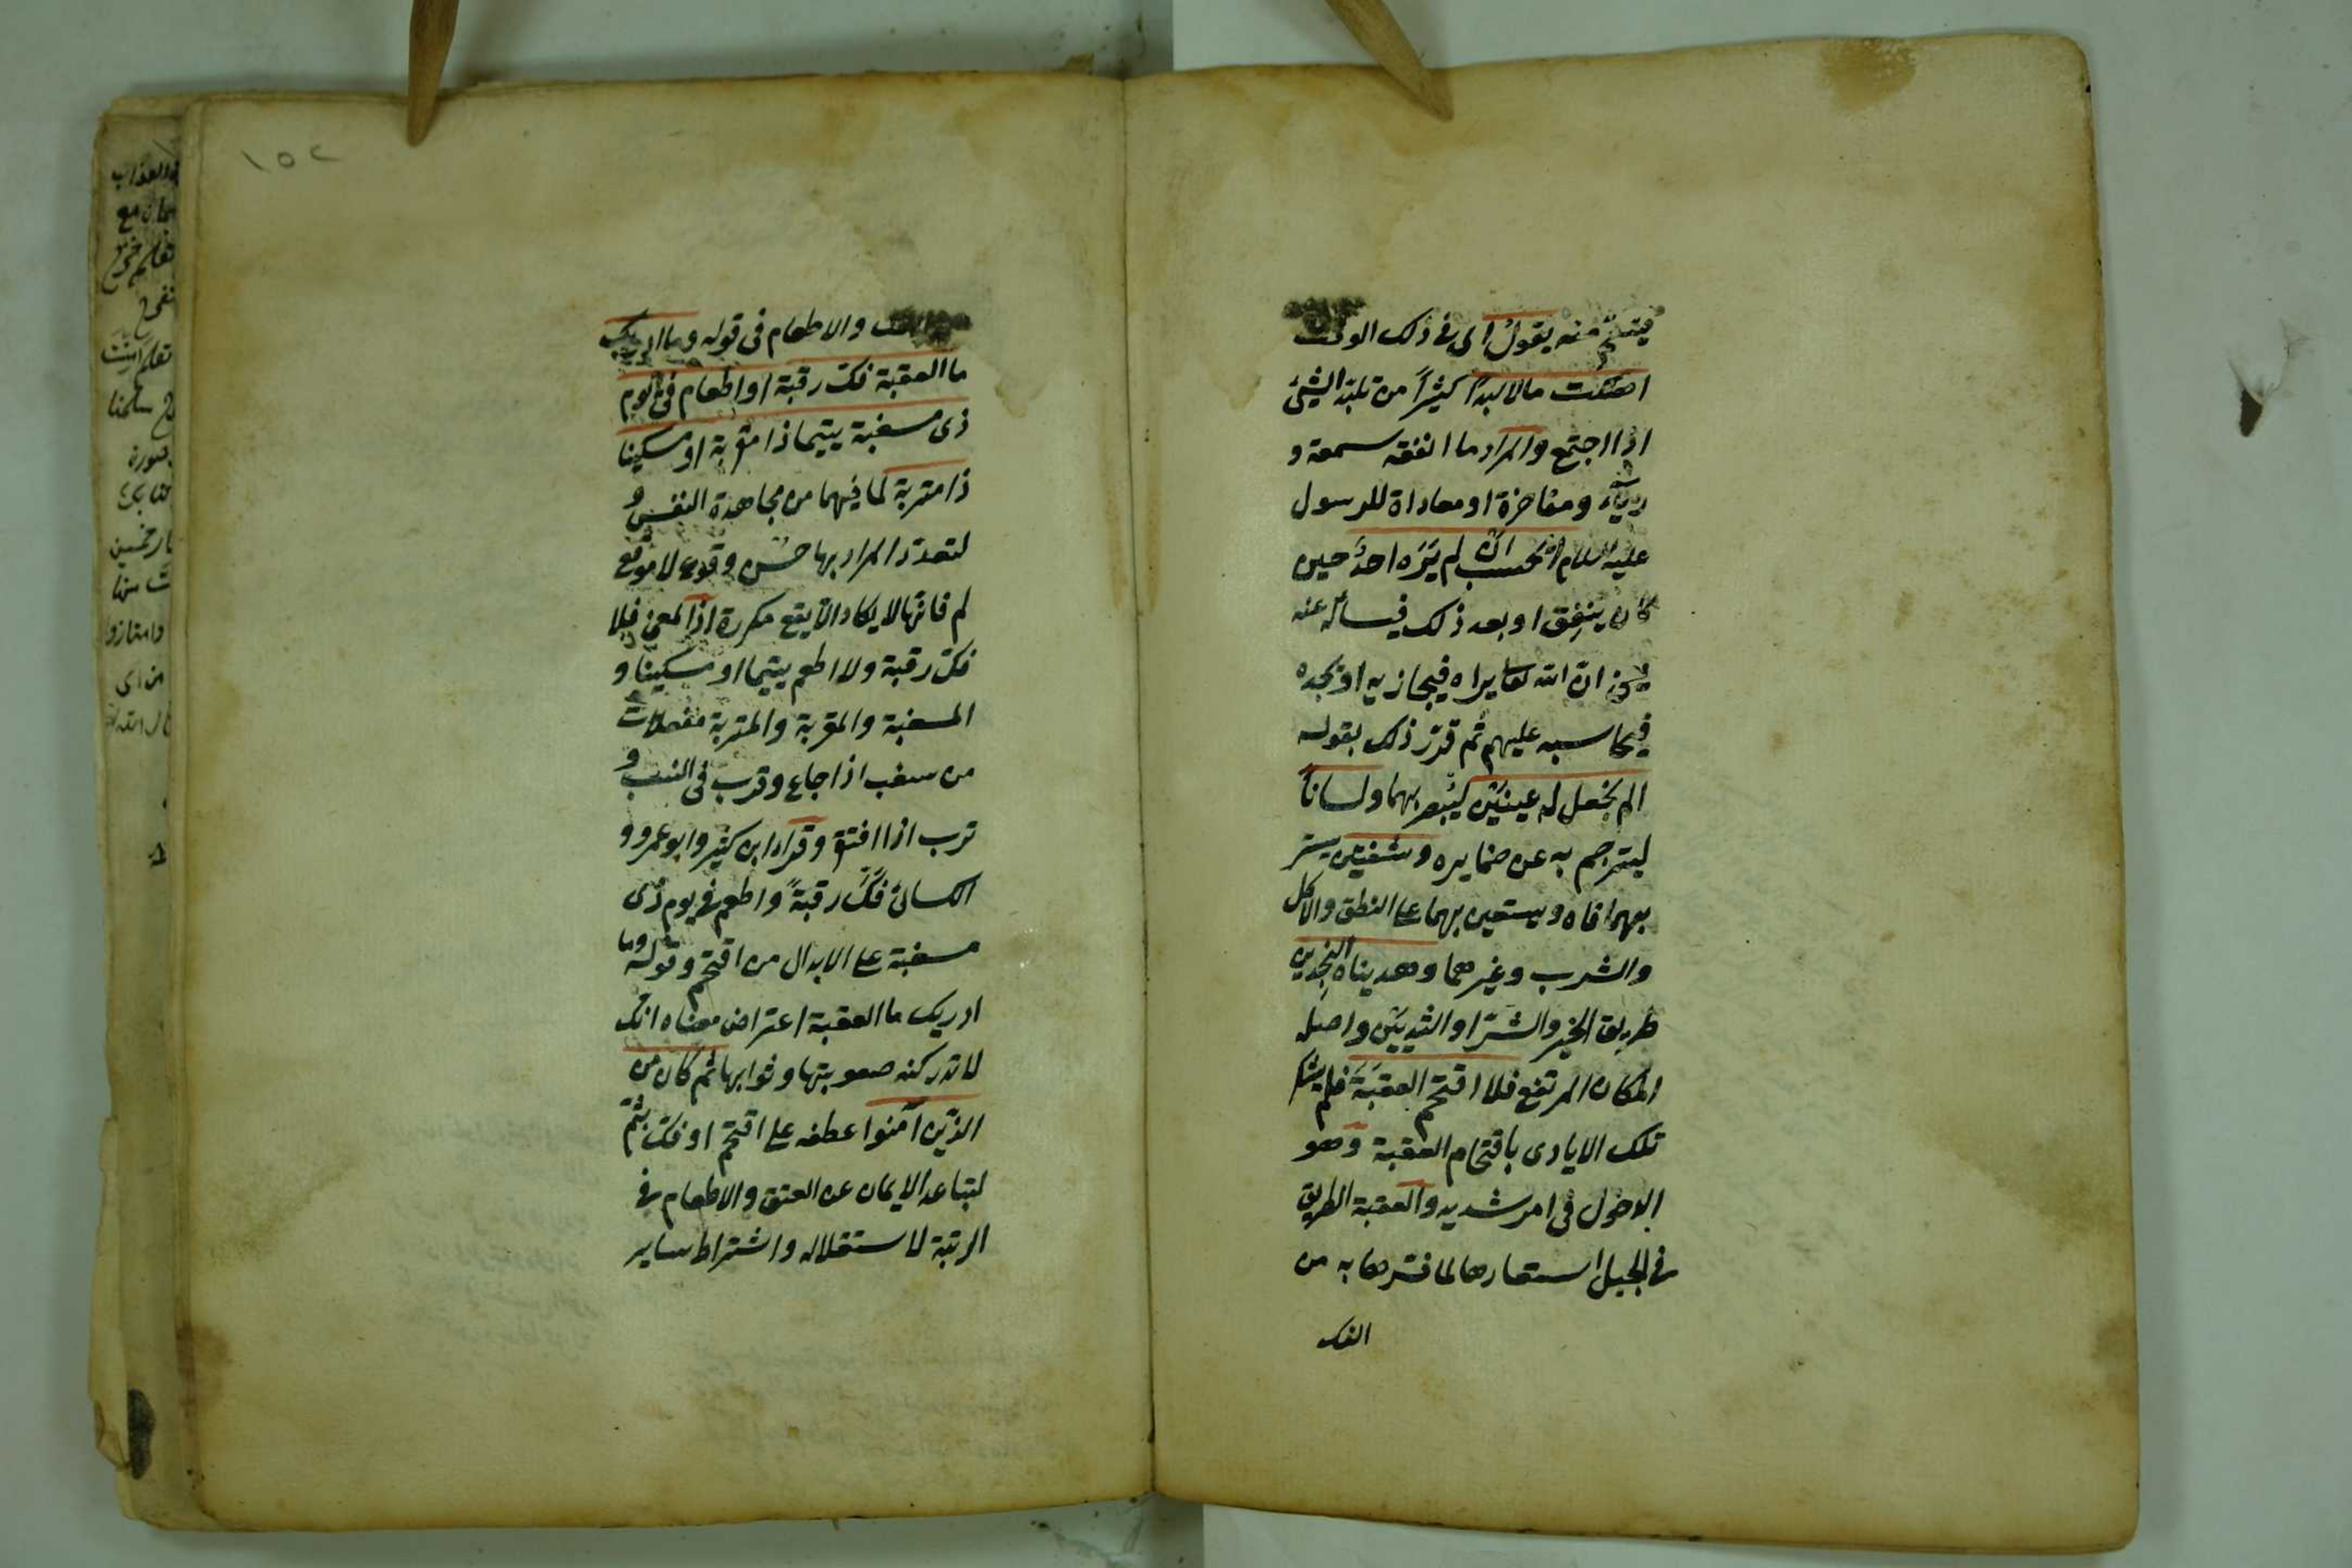 فينتقم منه يقول اى فى ذلك الوقت
اهلكت مالا لبدا كثيراً من تلبّد الشيئ
اذا اجتمع والمراد ما انفقه سمعة و
رياء ومفاخرة او معاداة للرسول
عليه السلام ايحسب ان لم يَرَه احدٌ حين
كان ينفِق او بعد ذلك فيسأله عنه
يعنى انّ الله تعا يراه فيجازيه او يجده
فيحاسبه عليهم ثم قدّر ذلك بقوله
الم نجعل له عينَيْن ليُبصر بهما ولساناً
ليترجم به عن ضمايره وشفتين يستر
بهما فاه ويستعين بهما على النطق والاكل
والشرب وغيرهما وهديناه النجدين
طريق الخير والشرّ او الثديَيْن واصله
المكان المرتفع فلا اقتحم العقبَةَ فلم يشكر
تلك الايادى باقتحام العقبة وهو
الدخول فى امر شديد والعقبة الطريق
فى الجبل استعارها لما فسّرها به من
الفك
١٥٢
الفك والاطعام فى قوله وما ادريك
ما العقبة فكّ رقبة او اطعام فى يوم
ذى مسغبة يتيما ذا مقربة او مسكينا
ذا متربة لما فيهما من مجاهدة النفس و
لتعدّد المراد بها حسُن وقوع لا موقع
لم فانّها لا يكاد الا يقع مكررة اذ المعنى فلا
فكّ رقبة ولا اطعم يتيما او مسكينا و
المسغبة والمقربة والمتربة مفعلات
من سغب اذا جاع وقرب فى النسب و
ترب اذا افتقر وقراء ابن كثير وابو عمرو و
الكسائى فكَّ رقبةً واطعم فى يوم ذى
مسغبة على الابدال من اقتحم وقوله وما
ادريك ما العقبة اعتراض معناه انك
لا تدر كنه صعوبتها وثوابها ثم كان من
الذين آمنوا عطفه على اقتحم او فكّ بثمّ
لتباعد الايمان عن العتق والاطعام فى
الرتبة لاستقلاله واشتراط ساير